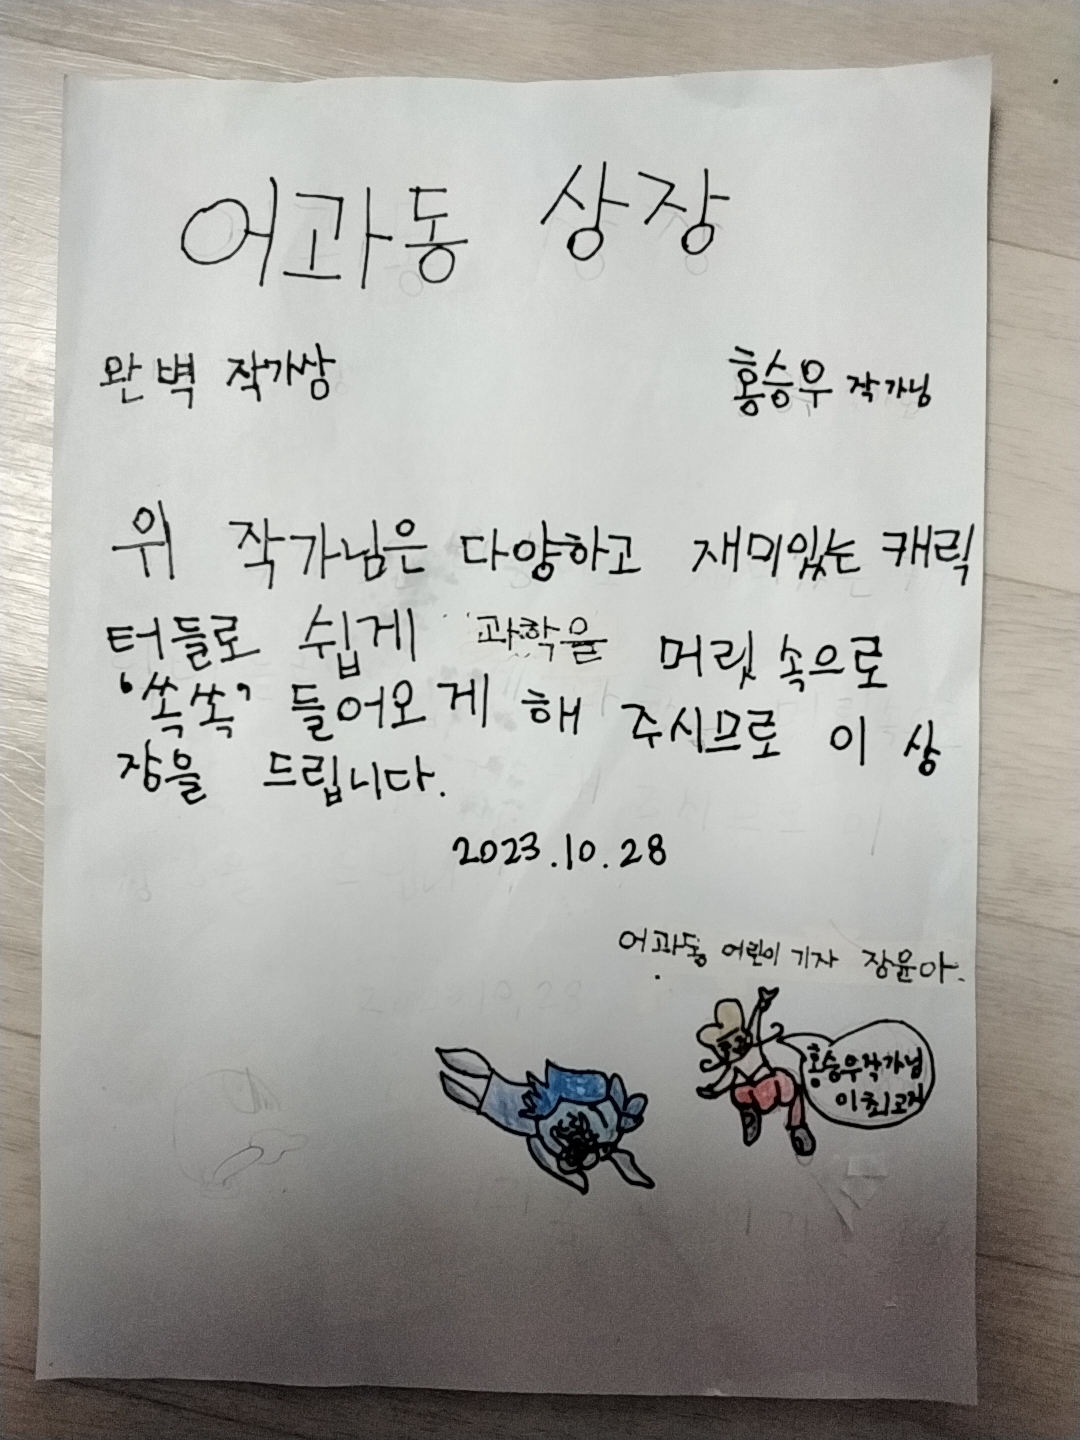 어과동 상장
완벽 작가상 홍승우 작가님
위 작가님은 다양하고 재미있는 캐릭
터들로 쉽게 과학을 머릿 속으로
'쏙쏙' 들어오게 해 주시므로 이 상
장을 드립니다.
2023.10.28
어과동 어린이 기자 장윤아.
홍승우작가님
이 최고지